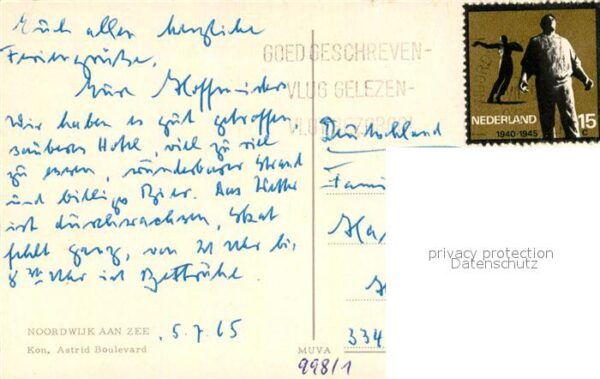 Euch allen herzliche
Feriengrüße,
Eure Hoffmeister
Wir haben es gut getroffen,
sauberes Hotel, viel zu viel
zu essen, wunderbarer Strand
und billiges Bier. Das Wetter
ist durchwachsen, Skat
fehlt ganz, von 21 Uhr bis
8 Uhr ist Bettruhe.
NOORDWIJK AAN ZEE
Kon, Astrid Boulevard
5.7.65
MUVA
998/1
GOED GESCHREVEN-
VLUG GELEZEN-
VLUG BEZORGD
NEDERLAND
15 c
1940-1945
Deutschland
Fami
Ha
334
privacy protection
Datenschutz